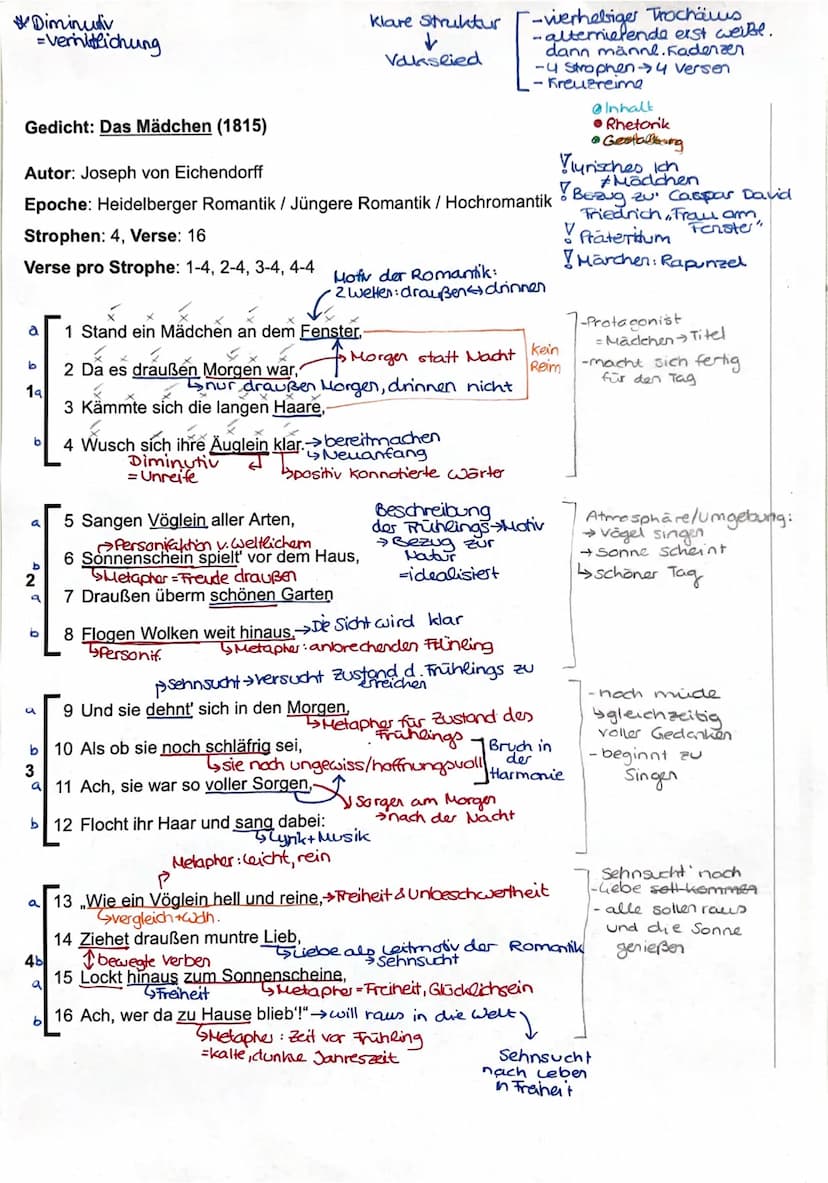 * Diminutiv
= Verniedlichung
Klare Struktur
↓
Volkslied
- vierhebiger Trochäus
- alternierende erst weibl.
dann männl. Kadenzen
- 4 Strophen → 4 Versen
- Kreuzreime
Inhalt
Rhetorik
Gestaltung
Gedicht: Das Mädchen (1815)
Autor: Joseph von Eichendorff
Epoche: Heidelberger Romantik / Jüngere Romantik / Hochromantik
Strophen: 4, Verse: 16
Verse pro Strophe: 1-4, 2-4, 3-4, 4-4
! lyrisches Ich
≠ Mädchen
! Bezug zu: Caspar David
Friedrich „Frau am
Fenster"
! Präteritum
! Märchen: Rapunzel
Motiv der Romantik:
2 Welten: draußen ↔ drinnen
a
1 Stand ein Mädchen an dem Fenster,
b
2 Da es draußen Morgen war,
→ Morgen statt Nacht
kein
Reim
↳ nur draußen Morgen, drinnen nicht
1a
3 Kämmte sich die langen Haare,
b
4 Wusch sich ihre Äuglein klar.
→ bereitmachen
↳ Neuanfang
Diminutiv
= Unreife
↳ positiv konnotierte Wörter
- Protagonist
= Mädchen → Titel
- macht sich fertig
für den Tag
a
5 Sangen Vöglein aller Arten,
→ Personifaktion v. Weltlichem
b
6 Sonnenschein spielt' vor dem Haus,
↳ Metapher = Freude draußen
2
a
7 Draußen überm schönen Garten
b
8 Flogen Wolken weit hinaus,
→ Die Sicht wird klar
↳ Personif.
↳ Metapher: anbrechenden Frühling
Beschreibung
des Frühlings → Motiv
→ Bezug zur
Natur
= idealisiert
Atmosphäre/Umgebung:
→ Vögel singen
→ Sonne scheint
↳ schöner Tag
→ Sehnsucht → versucht Zustand d. Frühlings zu
erreichen
a
9 Und sie dehnt' sich in den Morgen,
↳ Metapher für Zustand des
Frühlings
b
10 Als ob sie noch schläfrig sei,
↳ sie noch ungewiss/hoffnungsvoll
Bruch in
der
Harmonie
3
a
11 Ach, sie war so voller Sorgen,
↘ Sorgen am Morgen
→ nach der Nacht
b
12 Flocht ihr Haar und sang dabei:
↳ Lyrik + Musik
- noch müde
↳ gleichzeitig
voller Gedanken
- beginnt zu
Singen
Metapher: leicht, rein
a
13 „Wie ein Vöglein hell und reine,
→ Freiheit & Unbeschwertheit
↳ vergleich + Wdh.
14 Ziehet draußen muntre Lieb,
↳ Liebe als Leitmotiv der Romantik
→ Sehnsucht
4b
↕ bewegte Verben
a
15 Lockt hinaus zum Sonnenscheine,
↳ Freiheit
↳ Metapher = Freiheit, Glücklichsein
b
16 Ach, wer da zu Hause blieb'!“
→ will raus in die Welt
↳ Metapher: Zeit vor Frühling
= kalte, dunkle Jahreszeit
Sehnsucht
nach Leben
in Freiheit
Sehnsucht noch
- Liebe soll kommen
- alle sollen raus
und die Sonne
genießen